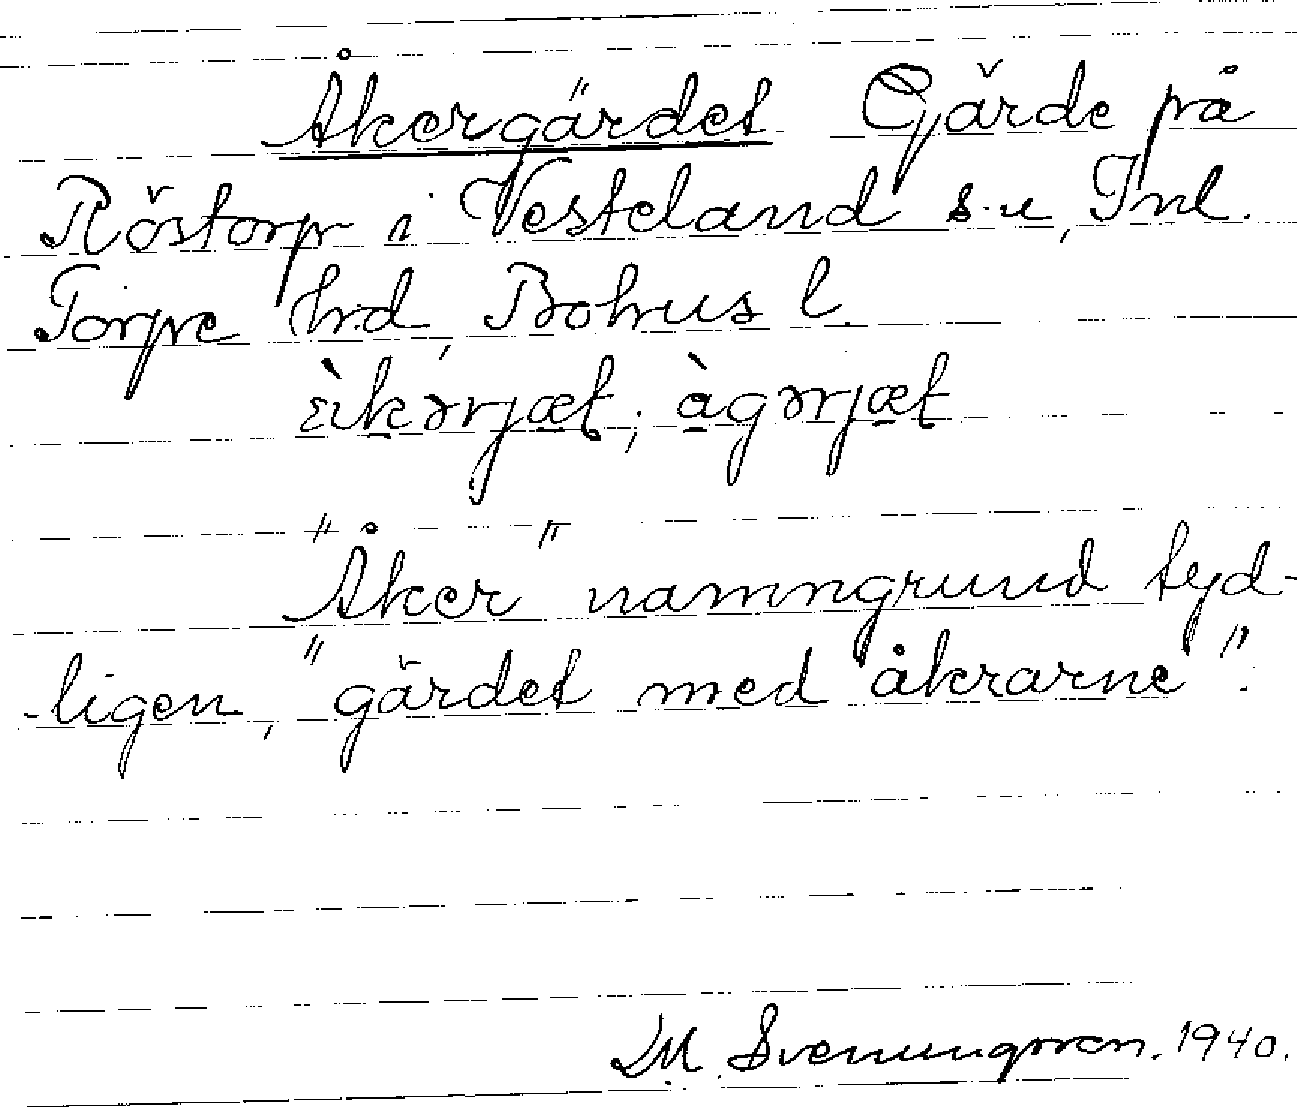 Åkergärdet Gärde på
Röstorp i Vesteland s.n, Inl.
Torpe hd, Bohus l.
åkərjæt; àgərjæt
"Åker" namngrund tyd-
-ligen, "gärdet med åkrarne".
M. Svenungsson. 1940.